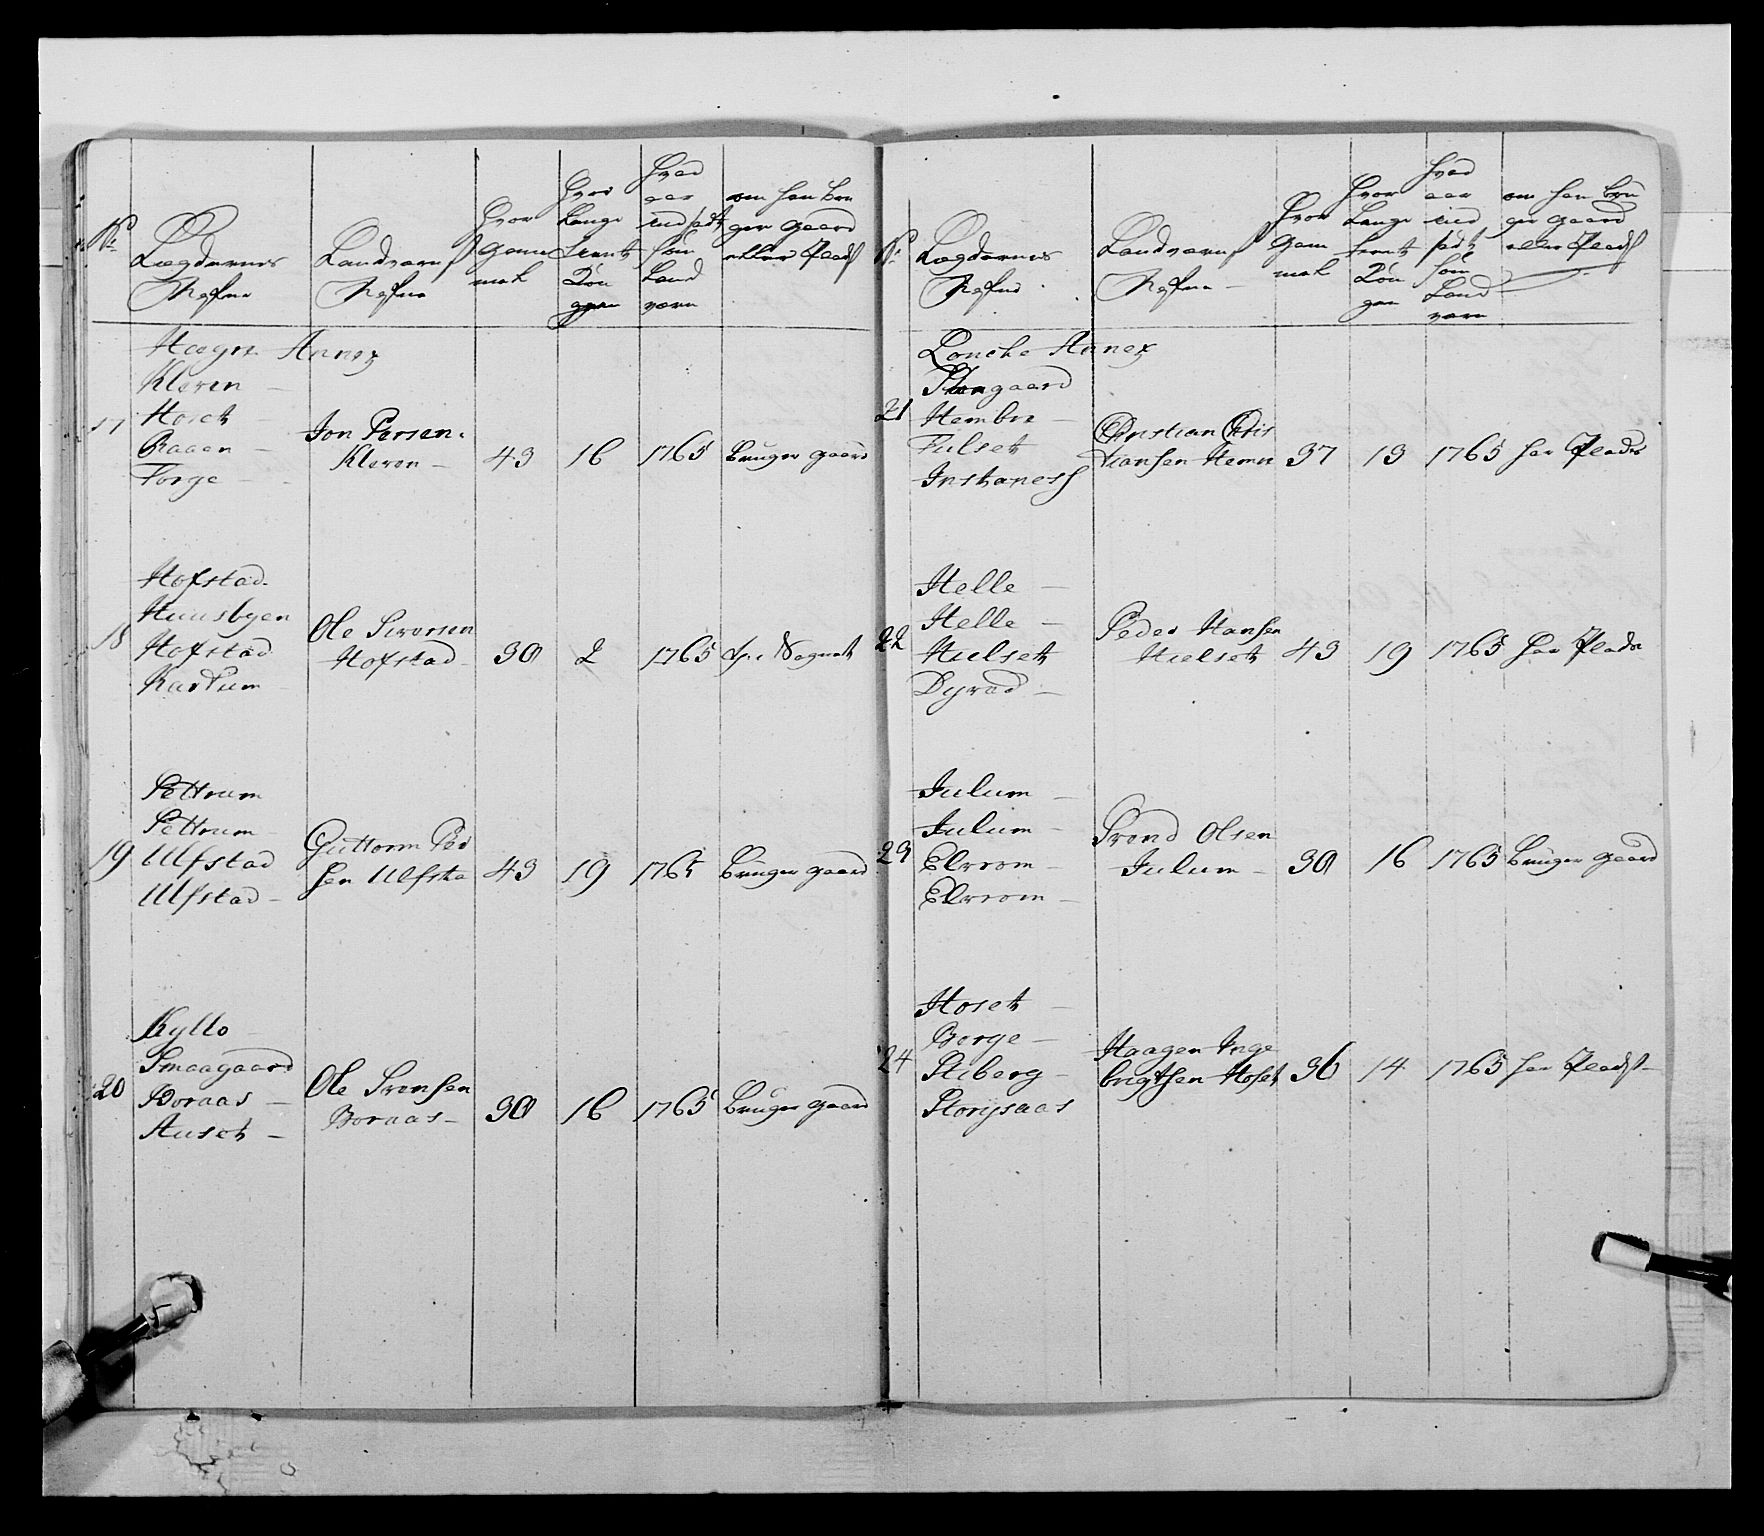 No
Lægdernes
Nafne
Landværns
Nafne
Hvor
Gam̅
mel
Hvor
Lenge
tient
Kon
gen
Hvad
aar
udsadt
som
Land
værn
om han bru
ger gaard
eller Plads
Hægre Annex
Kleven
Hoset
Raaen
Forge
17
Jon Persen
Kleven
43
16
1765
Bruger gaard
Hofstad
Huusbyen
Hofstad
18
Ole
Hofstad
30
2
1765
Pettrum
Pettrum
Ulfstad
Ulfstad
19
Guttorm Ped
sen Ulfsta
43
19
1765
Bruger gaard
Kyllo
Smaagaard
Boraas
Auset
20
Ole Svensen
Boraas
30
16
1765
Bruger gaard
No
Lægdernes
Nafne
Landværns
Nafne
Hvor
Gam
mel
Hvor
Lenge
tient
Kon
gen
Hvad
aar
ud
sadt
som
Land
værn
om han bru
ger gaard
eller Plads
Loncke Annex
Hembre
Fulset
21
Christian Chris
tiansen Hemre
37
13
1765
har Plads
Helle
Helle
Hulset
Dyrad
22
Peder Hansen
Hulset
43
19
1765
har Plads
Julum
Julum
Elvrom
Elvrom
23
Trond Olsen
Julum
30
16
1765
Bruger gaard
Hoset
Borge
Stiberg
24
Haagen Inge
brigtsen Hoset
36
14
1765
har Plads